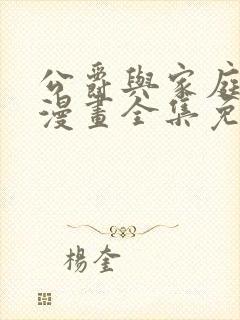 公爵與家庭
漫畫全集免
楊奎